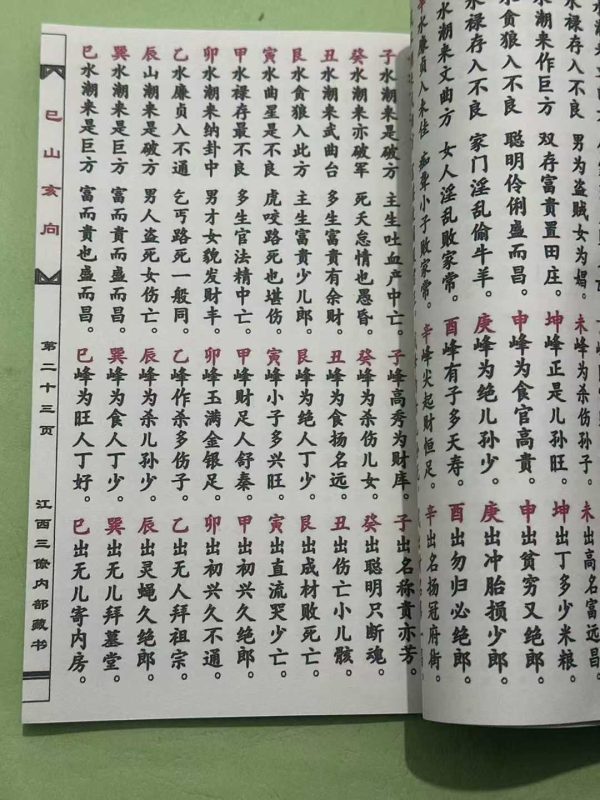 水禄存入不良 男为盗贼女为娼。未峰为杀伤孙子。未出高名富远昌。
水潮来作巨方 双存富贵置田庄。坤峰正是儿孙旺。坤出丁多少米粮。
水贪狼入不良 聪明伶俐盛而昌。申峰为食官高贵。申出贫穷又绝郎。
水禄存入不良 家门淫乱偷牛羊。庚峰为绝儿孙少。庚出冲胎损少郎。
水潮来文曲方 女人淫乱败家常。酉峰有子多夭寿。酉出勿归必绝郎。
水廉贞入未佳 小子败家常。辛峰尖起财恒足。辛出名扬冠府衙。
子水潮来是破方 主生吐血产中亡。子峰高秀为财库。子出名称贵亦芳。
癸水潮来亦破军 死天怠情也愚昏。癸峰为杀伤儿女。癸出聪明只断魂。
丑水潮来武曲台 多生富贵有余财。丑峰为食扬名远。丑出伤亡小儿骸。
艮水贪狼入此方 主生富贵少儿郎。艮峰为绝人丁少。艮出成材败死亡。
寅水曲星是不良 虎咬路死也堪伤。寅峰小子多兴旺。寅出直流哭少亡。
甲水禄存最不良 多生官法精中亡。甲峰财足人舒泰。甲出初兴久绝郎。
卯水潮来纳卦中 男才女貌发财丰。卯峰玉满金银足。卯出初兴久不通。
乙水廉贞入不通 乞丐路死一般同。乙峰作杀多伤子。乙出无人拜祖宗。
辰山潮来是破方 男人盗死女伤亡。辰峰为杀儿孙少。辰出灵蝇久绝郎。
巽水潮来是巨方 富而贵而盛而昌。巽峰为食人丁少。巽出无儿拜墓堂。
巳水潮来是巨方 富而贵也盛而昌。巳峰为旺人丁好。巳出无儿寄内房。
巳山亥向
第二十三页
江西三僚内部藏书